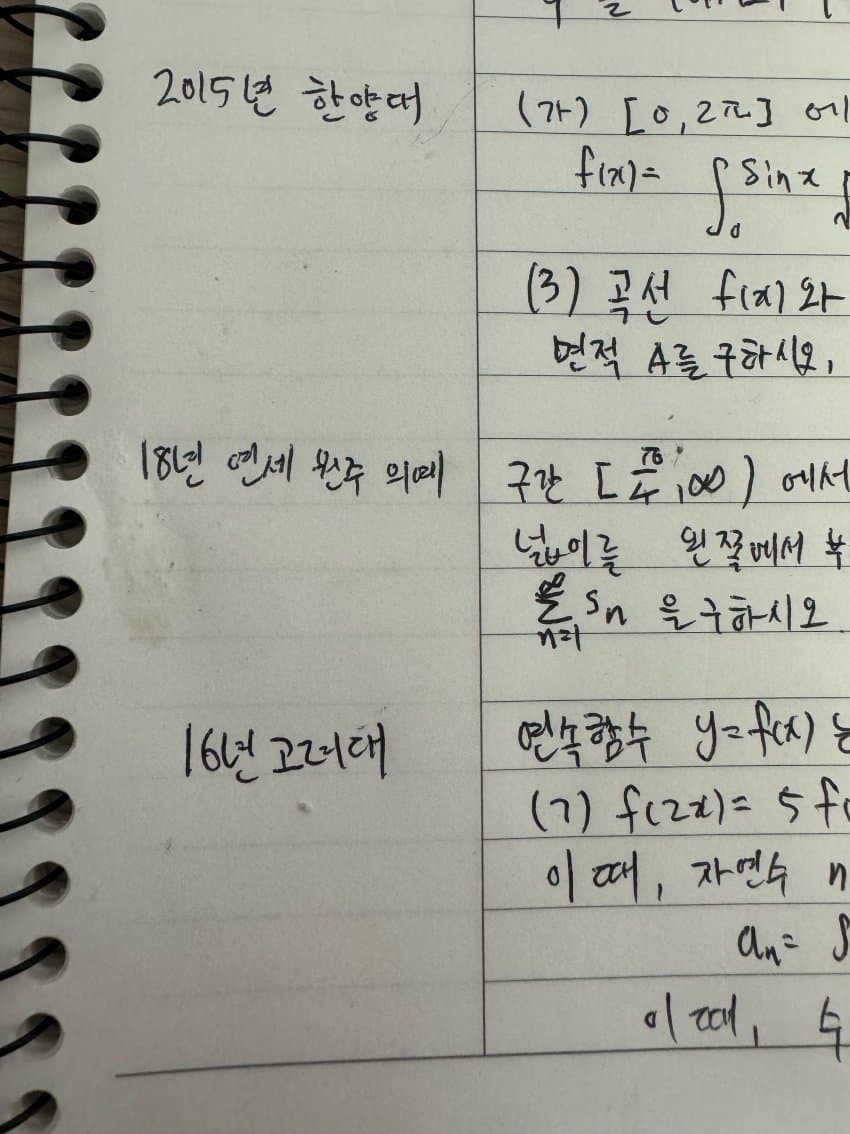 2015년 한양대
(가) [0, 2π] 에
f(x)= ∫₀ sinx
(3) 곡선 f(x)와
면적 A를 구하시오,
18년 연세 원주 의예
구간 [π/4, ∞) 에서
넓이를 왼쪽에서 부
∞
Σ Sn 을 구하시오
n=1
16년 고려대
연속함수 y=f(x) 는
(ㄱ) f(2x)= 5f(
이 때, 자연수 n
an= ∫
이 때, 수